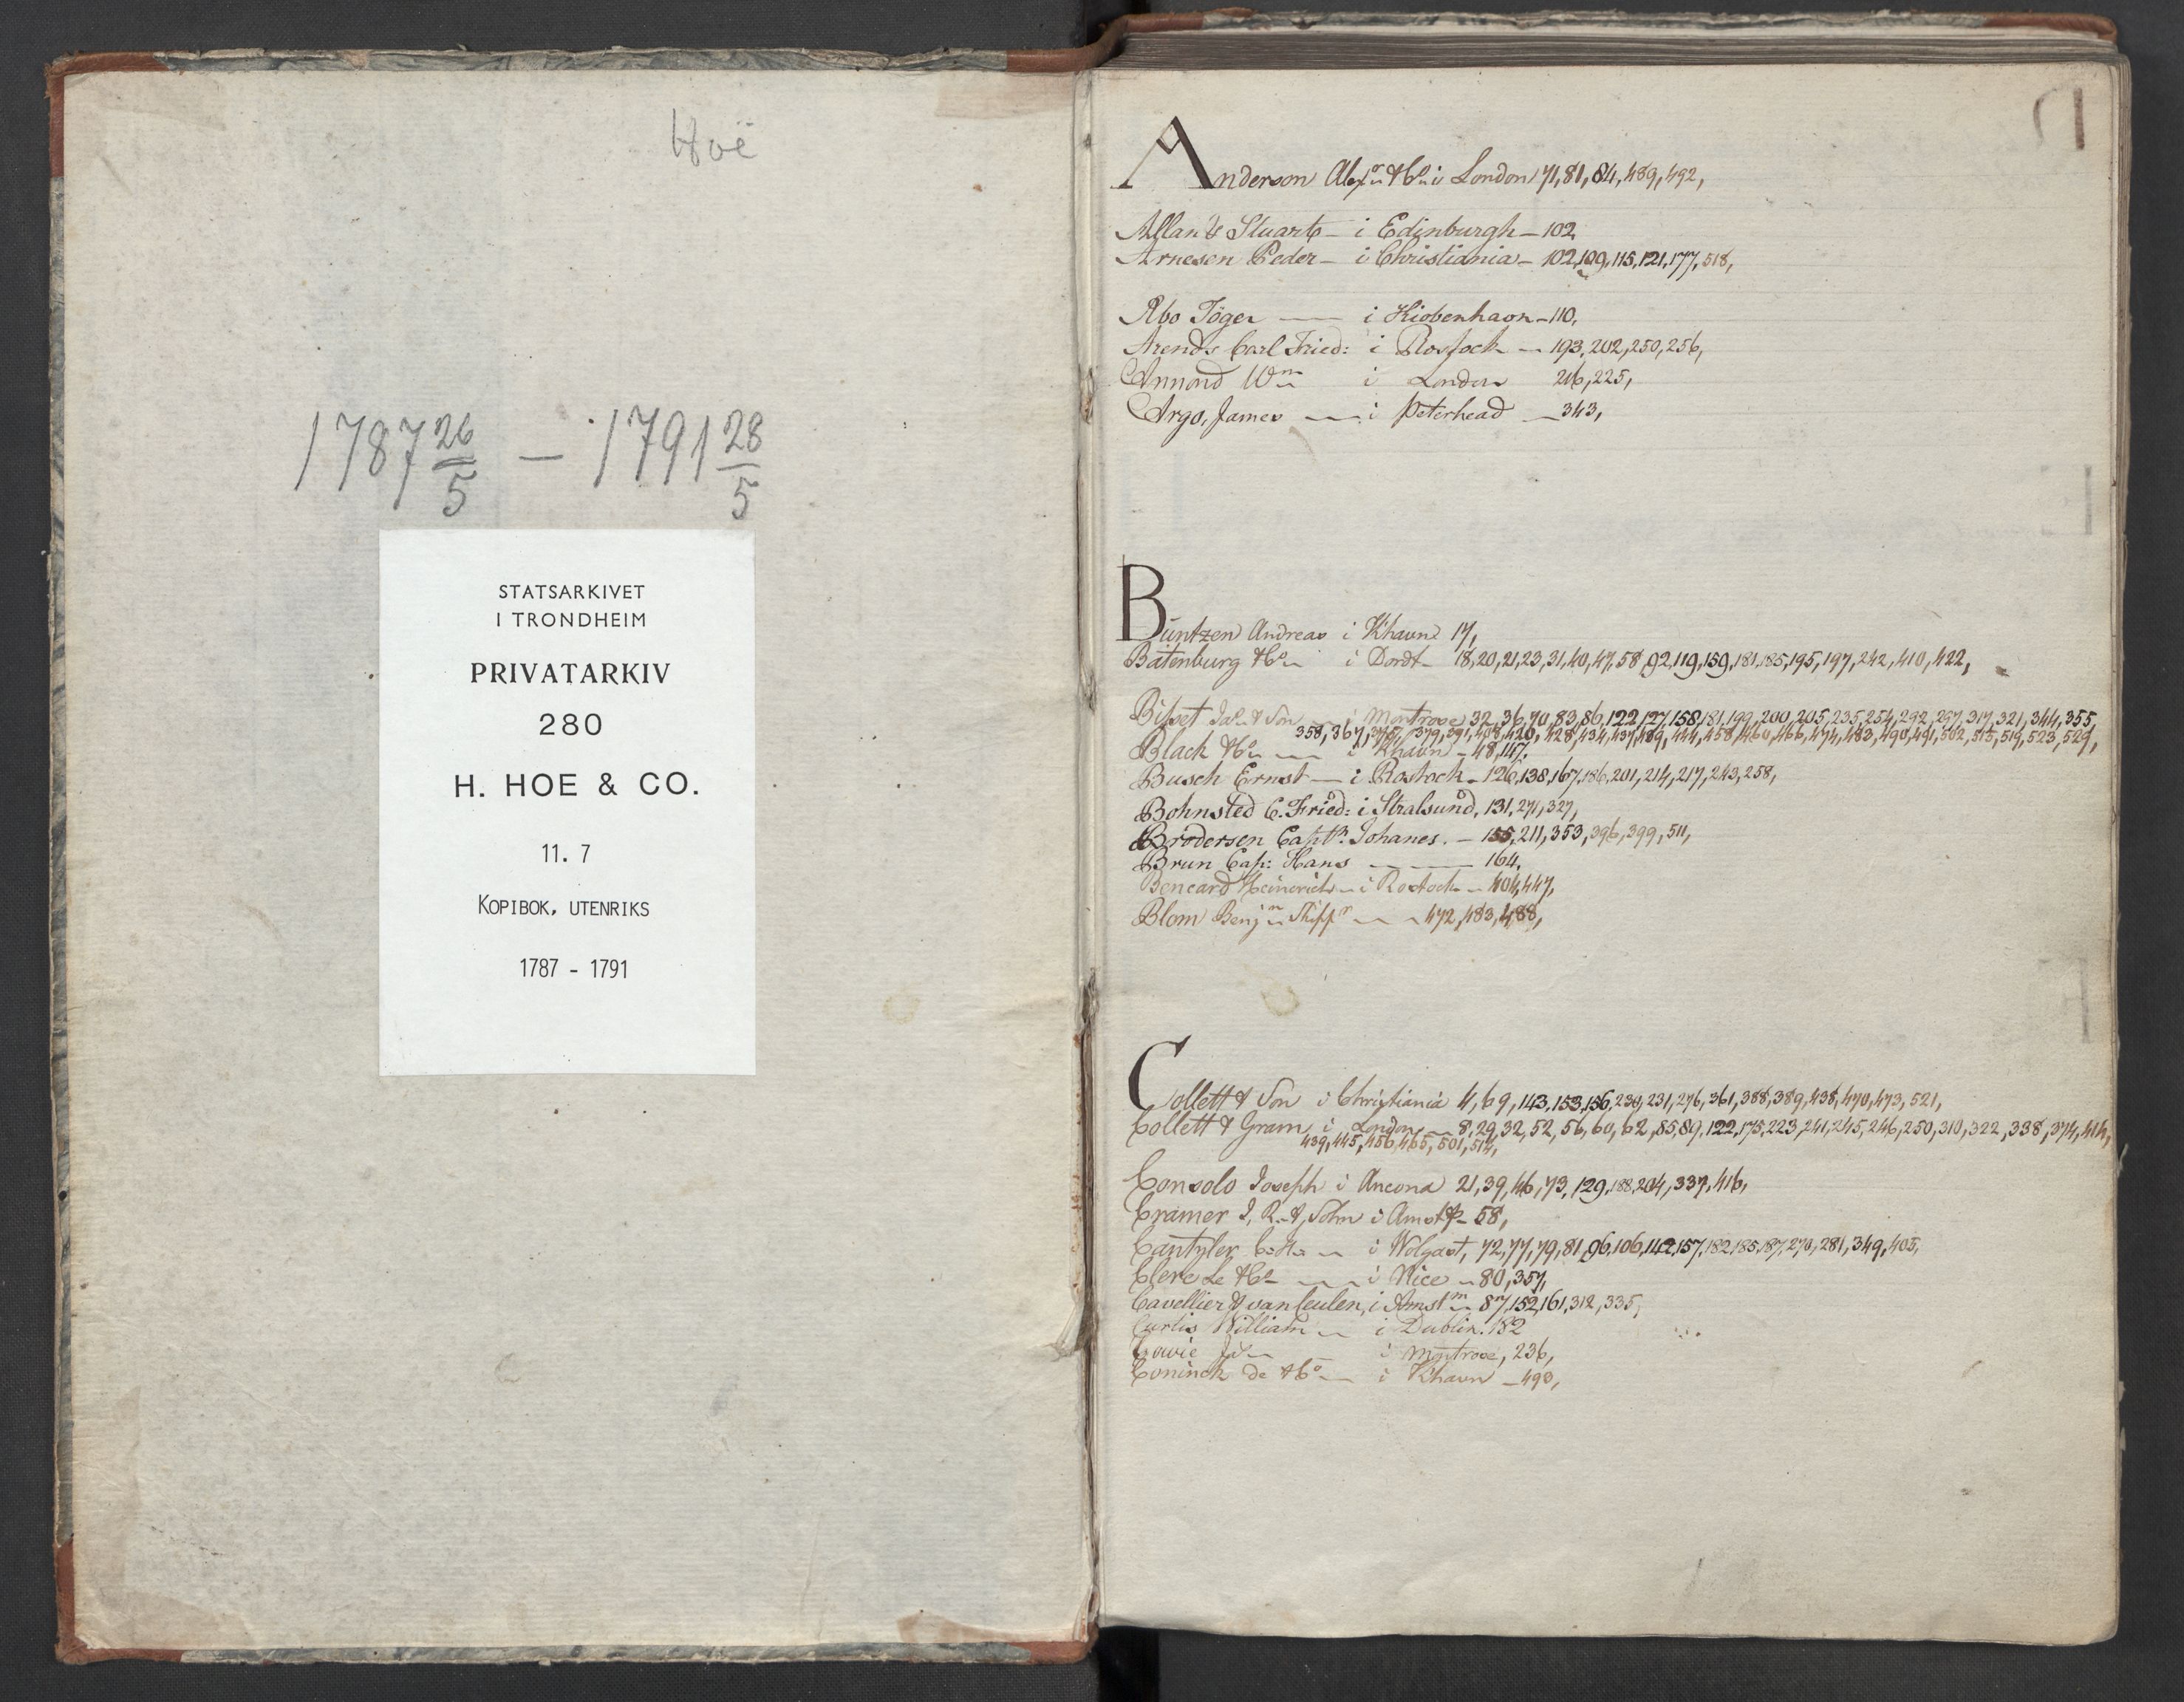 Hoë
1787 26/5 — 1791 28/5
STATSARKIVET
I TRONDHEIM
PRIVATARKIV
280
H. HOE & CO.
11. 7
KOPIBOK, UTENRIKS
1787 - 1791
Anderson Alexr & Co i London 71, 81, 84, 489, 492,
Allan & Stuart — i Edinburgh — 102
Arnesen Peder — i Christiania — 102, 109, 115, 121, 177, 518,
Abo Töger — i Kiobenhavn — 110,
Arends Carl Fried: i Rostock — 193, 202, 250, 256,
Annond Wm i London 216, 225,
Argo, James — i Peterhead — 343,
Buntzen Andreas i Khavn 17,
Batenburg & Co i Dordt — 18, 20, 21, 23, 31, 40, 47, 58, 92, 119, 159, 181, 185, 195, 197, 242, 410, 422,
Bisset Jas & Son — i Montrose 32, 36, 70, 83, 86, 122, 127, 158, 181, 199, 200, 205, 235, 254, 292, 297, 317, 321, 344, 355,
358, 367, 379, 391, 408, 420, 428, 434, 437, 439, 444, 458, 460, 466, 474, 483, 490, 491, 502, 515, 519, 523, 529,
Black & Co — i Khavn — 48, 117,
Busch Ernst — i Rostock — 126, 138, 167, 186, 201, 214, 217, 243, 258,
Bohnsted C. Fried: i Stralsund, 131, 271, 327,
Brodersen Captn. Johanes. — 155, 211, 353, 396, 399, 511,
Brun Cap: Hans — 164,
Bencard Heinerich — i Rostock — 404, 447,
Blom Benjn Skippr — 472, 483, 488,
Collett & Son i Christiania 4, 69, 143, 153, 156, 230, 231, 276, 361, 388, 389, 438, 470, 473, 521,
Collett & Gram i London — 8, 29, 32, 52, 56, 60, 62, 85, 89, 122, 175, 223, 241, 245, 246, 250, 310, 322, 338, 374, 414,
439, 445, 456, 465, 501, 514,
Consolo Joseph i Ancona 21, 39, 46, 73, 129, 188, 204, 337, 416,
Cramer J, R. & Sohn i Amst — 58,
Cantzler C. H. — i Wolgast, 72, 77, 79, 81, 96, 106, 142, 157, 182, 185, 187, 270, 281, 349, 405,
Clerc Le & Co — i Nice — 80, 357,
Cavellier & van Ceulen, i Amstm — 87, 152, 161, 312, 335,
Curtis William — i Dublin. 182
Cowie Jas — i Montrose, 236,
Coninck de & Co — i Khavn — 490,